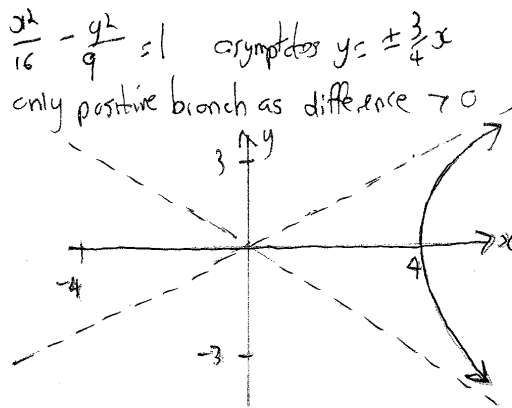 x²/16 - y²/9 = 1 asymptotes y = ± 3/4 x
only positive branch as difference > 0
y
3
x
-4
4
-3